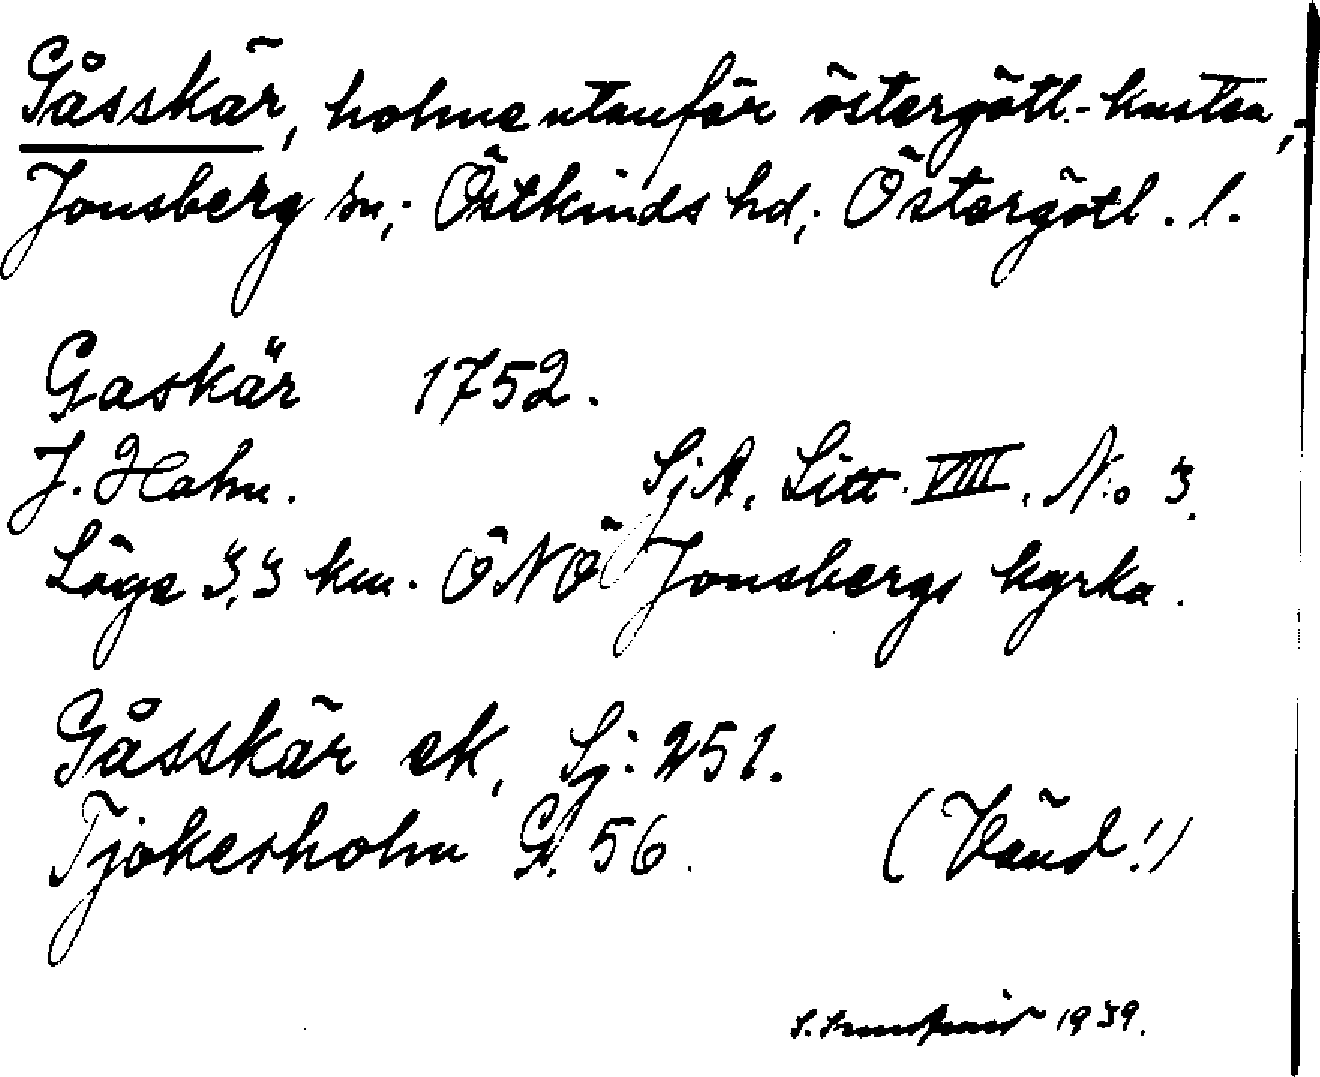 Gåsskär, holme utanför östergötl.-kusten,
Jonsberg sn; Östkinds hd; Östergötl. l.
Gaskär 1752.
J. Hahn. SjA, Litt. VIII, N:o 3.
Läge 3,3 km. ÖNÖ Jonsbergs kyrka.
Gåsskär ek, Sj: 251.
Tjokesholm G. 56. (Vänd!)
1939.